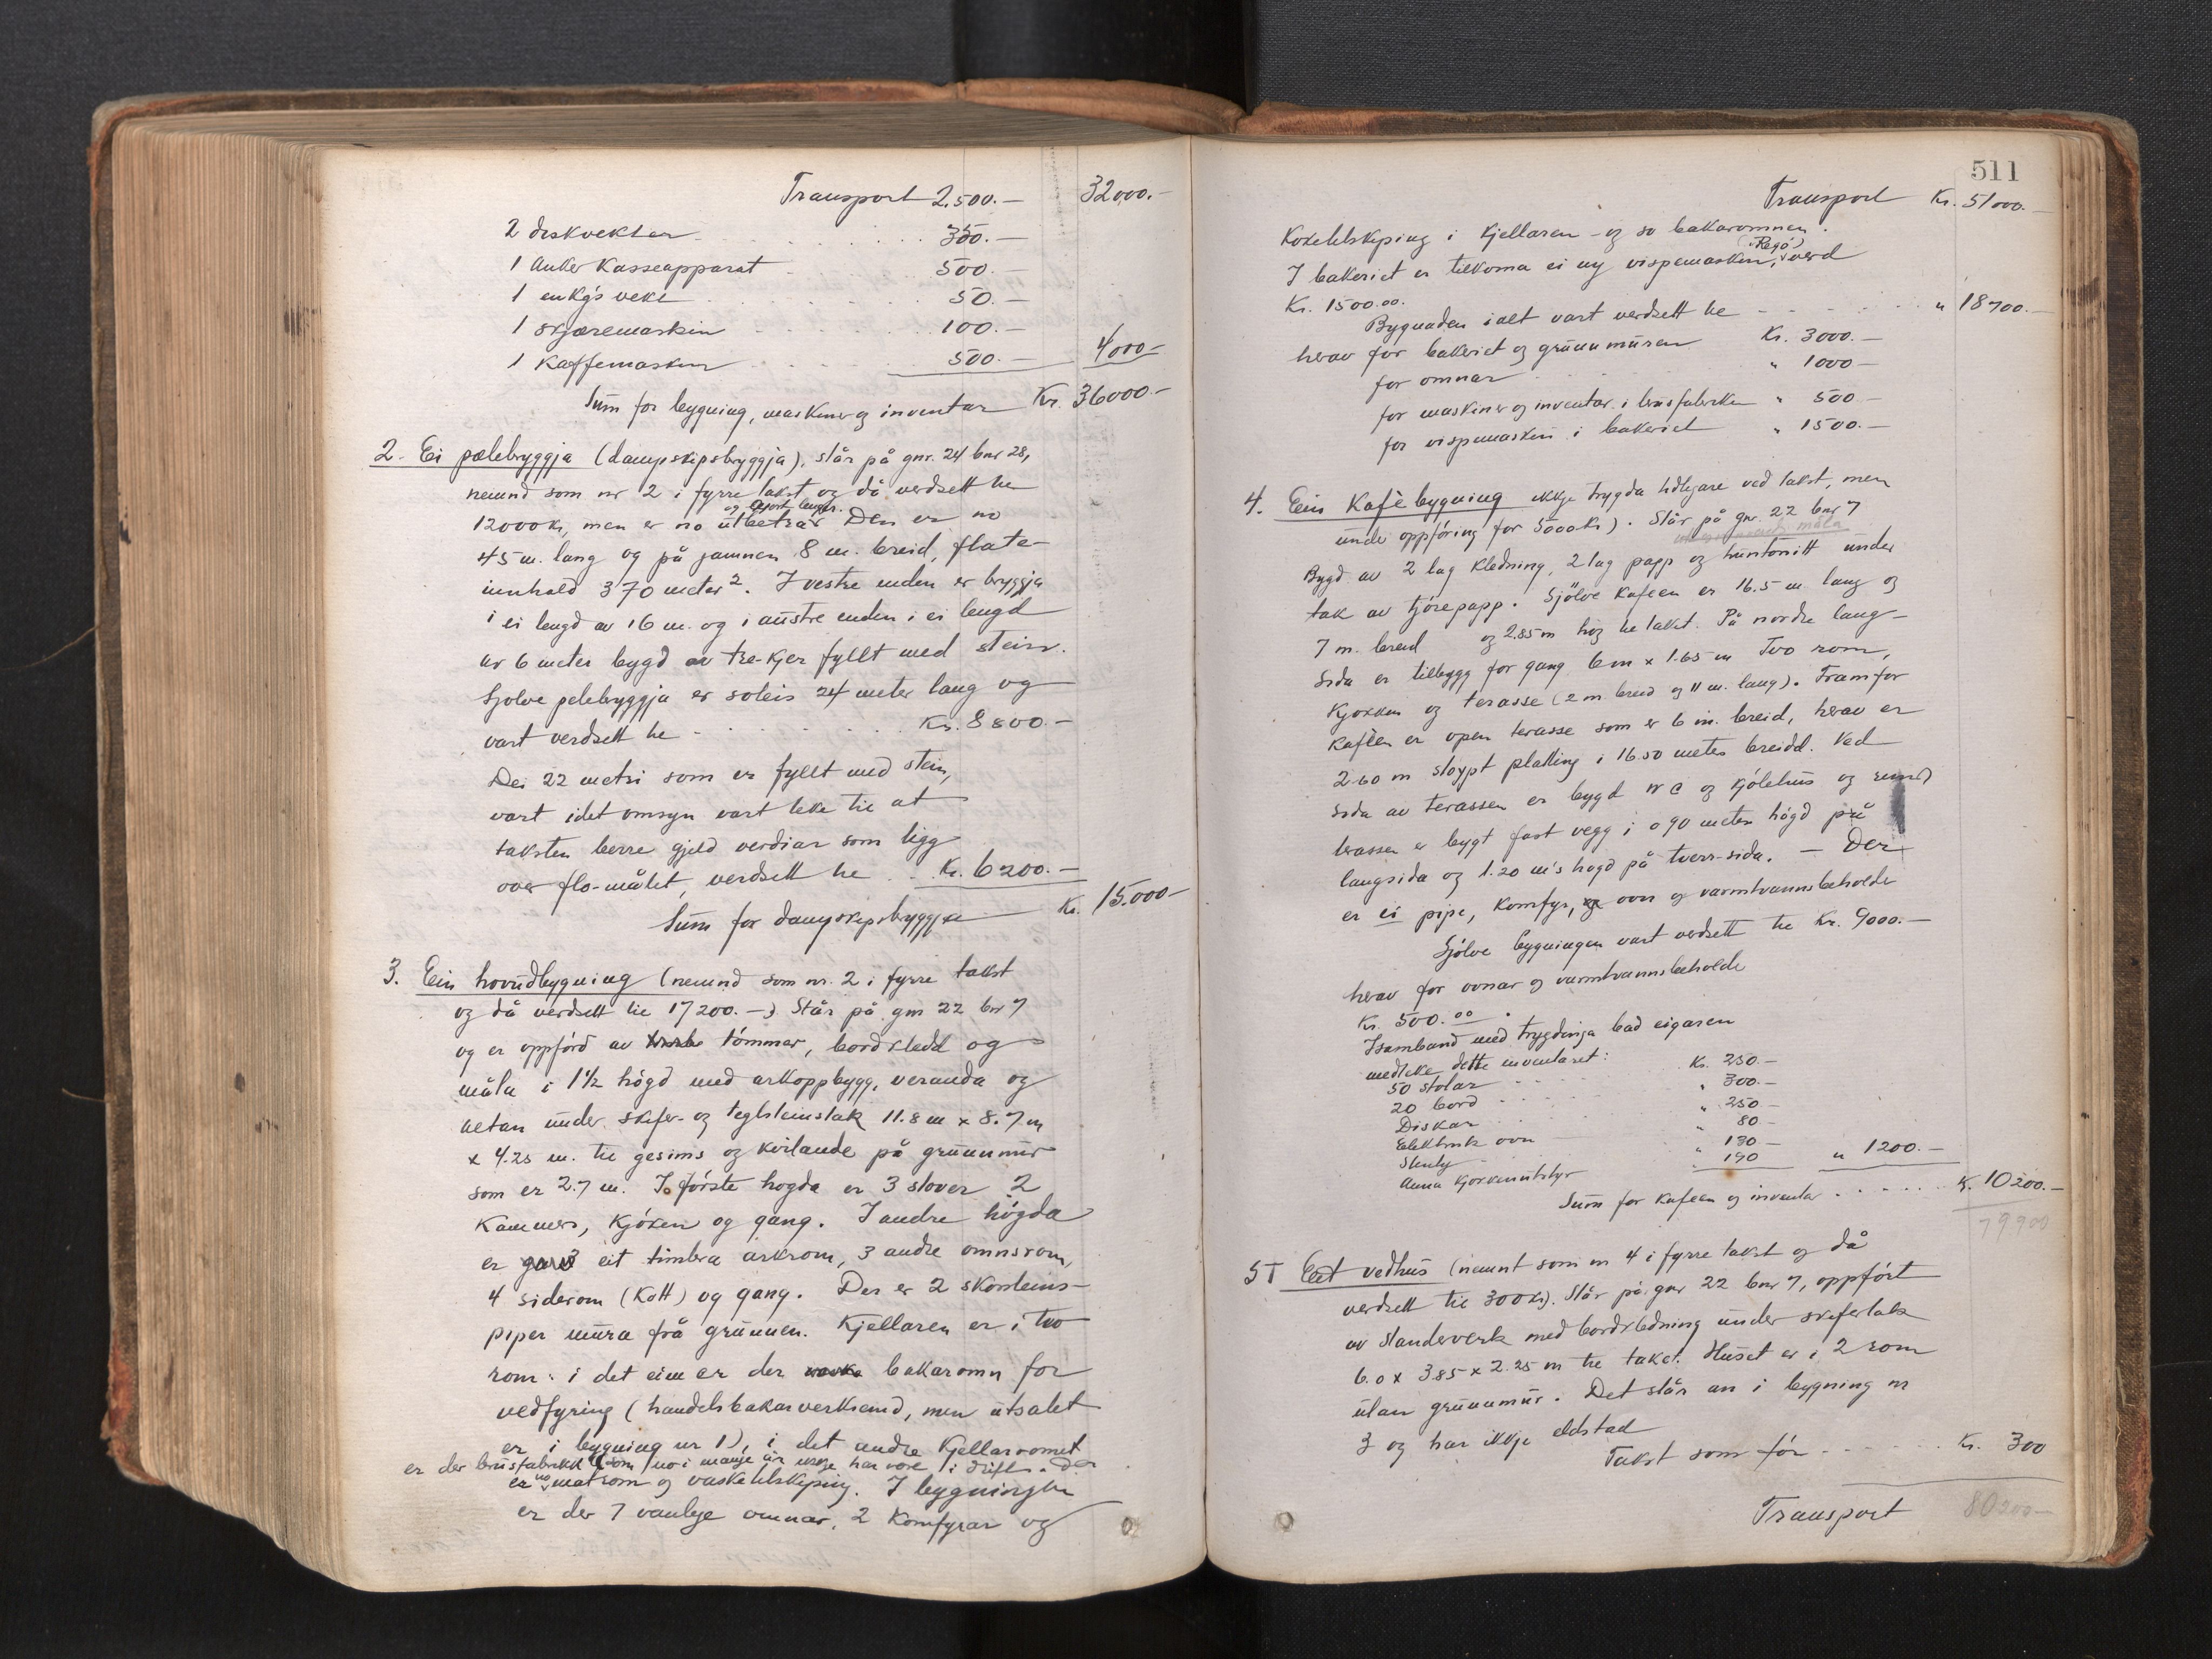 Transport 2.500.— 32000.—
2 diskvekter 350.—
1 Anker Kasseapparat 500.—
1 enkg's vekt 50.—
1 skjæremaskin 100.—
1 Kaffemaskin 500.— 4000—
Sum for bygning, maskiner og inventar Kr. 36000.—
2. Ei pælebryggja (dampskipsbryggja), står på gnr. 24 bnr 28,
nemnd som nr 2 i fyrre takst og då verdsett he
og gjort lengr.
12000kr, men er no utbetra. Den er no
45 m. lang og på jamnen 8 m. breid, flate-
innhald 370 meter². I vestre enden er bryggja
i ei lengd av 16 m. og i austre enden i ei lengd
av 6 meter bygd av tre-kjer fyllt med stein.
Sjølve pelebryggja er soleis 24 meter lang og
vart verdsett he Kr. 8800.—
Dei 22 metri som er fyllt med stein,
vart idet omsyn vart teke til at
taksten berre gjeld verdiar som ligg
over flo-målet, verdsett he Kr. 6200.—
Sum for dampskipsbryggja Kr. 15.000—
3. Ein hovudbygning (nemnd som nr. 2 i fyrre takst
og då verdsett til 17200.—) Står på gnr 22 bnr 7
og er oppförd av tömmer, bordkledd og
måla i 1½ högd med arkoppbygg, veranda og
altan under skifer- og teglsteinstak 11.8 m x 8.7 m
x 4.25 m. til gesims og kvilande på grunnmur
som er 2.7 m. I förste högda er 3 stover 2
Kammers, Kjöken og gang. I andre högda
er eit timbra arkrom, 3 andre omnsrom,
4 siderom (Kott) og gang. Der er 2 skorsteins-
piper mura frå grunnen. Kjellaren er i two
rom: i det eine er der bakaromn for
vedfyring (handelsbakarverksemd, men utsalet
er i bygning nr 1), i det andre Kjellarromet
er der brusfabrikk (som no i mange år ikkje har vore i drift. Der
er no matrom og vasketilskiping. I bygningen
er der 7 vanlege omnar, 2 Komfyrar og
511
Transport Kr. 51000.—
Koketilskiping i Kjellaren — og so bakaromnen.
("Regö")
I bakeriet er tilkoma ei ny vispemaskin, verd
Kr. 1500.00.
Bygnaden i alt vart verdsett he " 18700.—
herav for bakeriet og grunnmuren Kr. 3000.—
for omnar " 1000—
for maskiner og inventar i brusfabrikken " 500—
for vispemaskin i bakeriet " 1500.—
4. Ein Kafébygning ikkje trygda tidlegare ved takst, men
under oppföring for 5000kr). Står på gnr. 22 bnr 7
måla
Bygd av 2 lag kledning, 2 lag papp og huntonitt under
tak av tjörepapp. Sjölve Kafeen er 16.5 m lang og
7 m. breid og 2.85 m hög he taket. På nordre lang-
sida er tilbygg for gang 6 m x 1.65 m Tvo rom,
Kjøkken og terasse (2 m. breid og 11 m. lang). Framfor
Kaféen er open terasse som er 6 m. breid, herav er
2.60 m støypt platting i 16.50 meter breidd. Ved
sida av terassen er bygd W C og kjölehus og rund
terassen er bygt fast vegg i 0.90 meter högd på
langsida og 1.20 m's högd på tverr-sida. — Der
er ei pipe, Komfyr, ovn og varmtvannsbeholder
Sjölve bygningen vart verdsett til Kr. 9000.—
herav for ovnar og varmtvannsbeholde
Kr. 500.00.
Isamband med trygdinga bad eigaren
medteke dette inventaret:
50 stolar Kr. 250.—
20 bord " 300.—
Diskar " 250—
Elektrisk ovn " 80—
" 130—
Anna Kjøkkenutstyr " 190 " 1200.—
Sum for Kafeen og inventar Kr. 10200.—
79900
5. Eit vedhus (nemnt som nr 4 i fyrre takst og då
verdsett til 300kr). Står på gnr 22 bnr 7, oppfört
av standerverk med bordkledning under skifertak
6.0 x 3.85 x 2.25 m til taket. Huset er i 2 rom
utan grunnmur. Det står an i bygning nr
3 og har ikkje eldstad
Takst som för Kr. 300
Transport 80200—